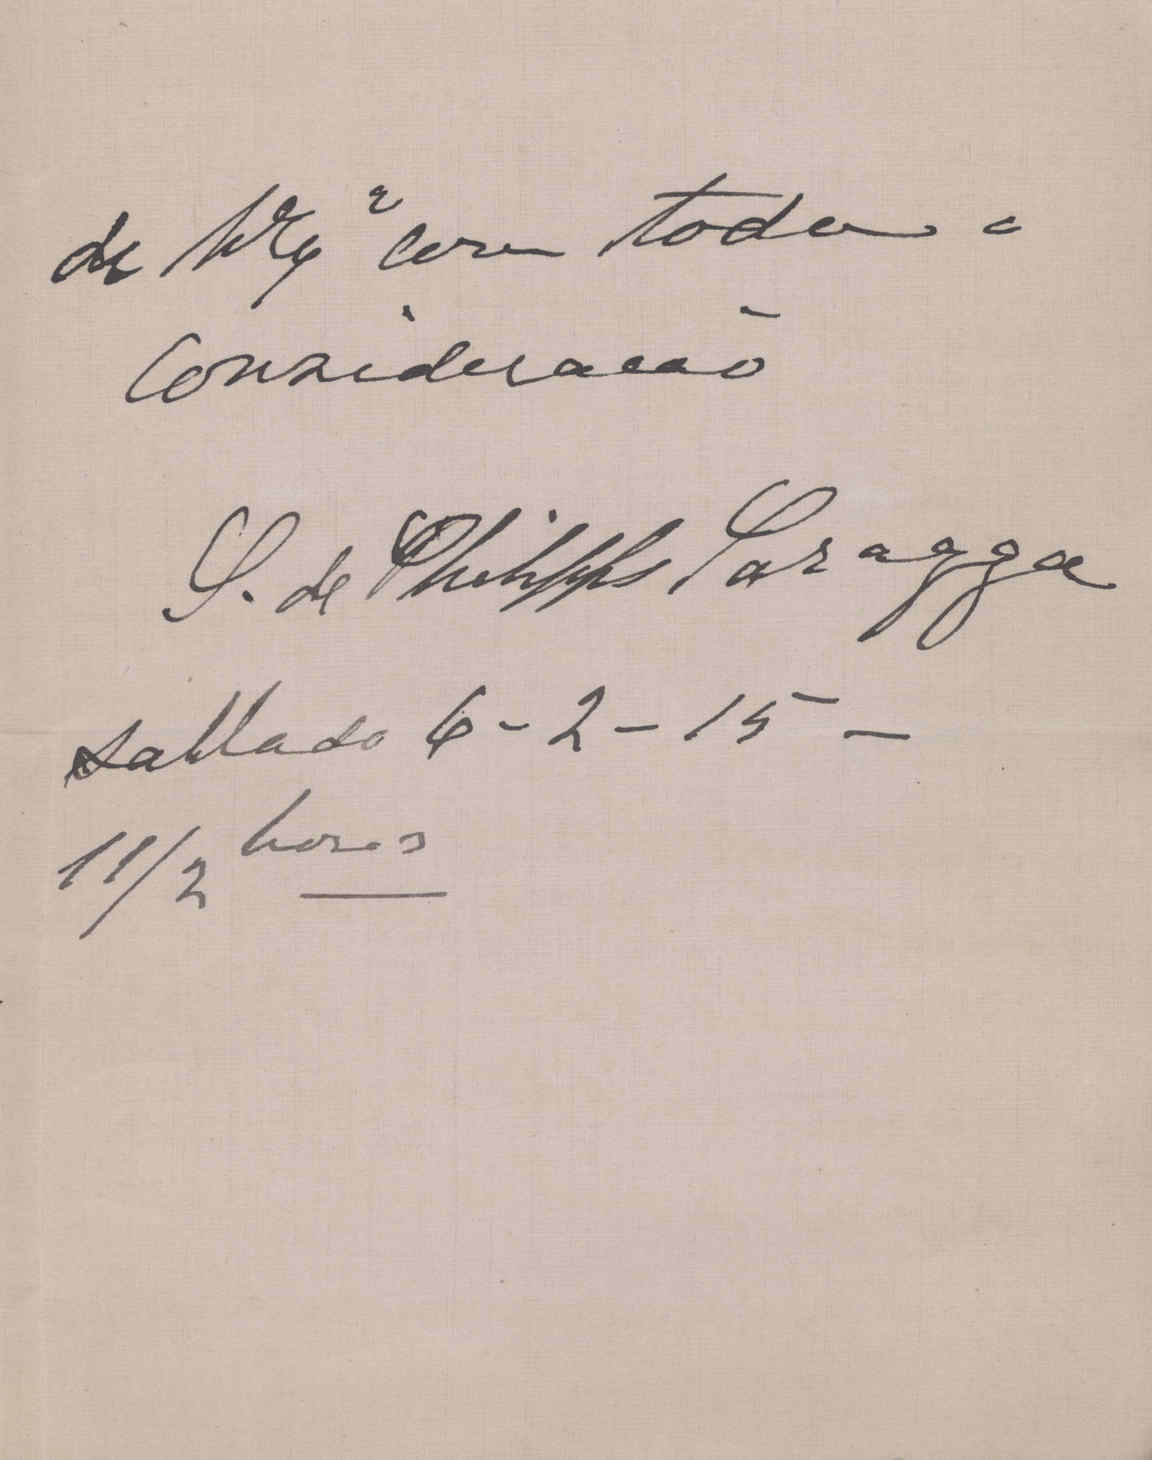 de V. Exª com toda a
Consideracaõ
S. de Philipps Saragga
sabbado 6-2-15-
11/2 horas